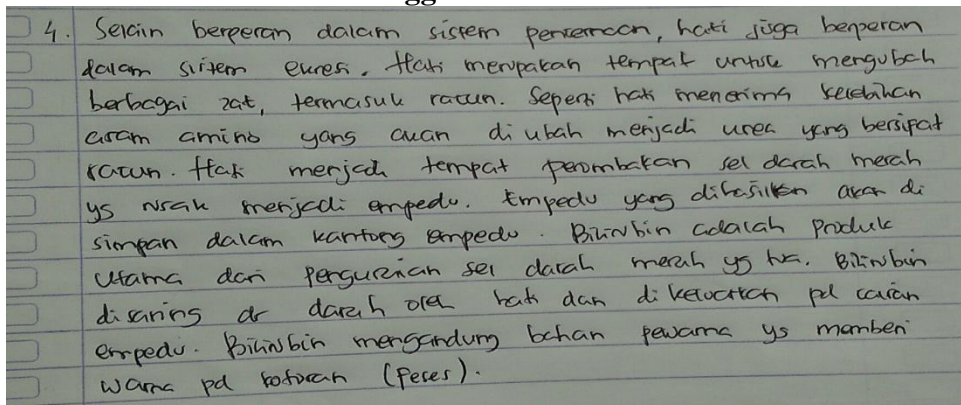 4. Selain berperan dalam sistem pencernaan, hati juga berperan
dalam sistem ekresi. Hati merupakan tempat untuk mengubah
berbagai zat, termasuk racun. Seperti hati menerima kelebihan
asam amino yang akan di ubah menjadi urea yang bersipat
racun. Hati menjadi tempat perombakan sel darah merah
yg rusak menjadi empedu. Empedu yang dihasilkan akan di
simpan dalam kantong empedu. Bilirubin adalah Produk
Utama dari Penguraian sel darah merah yg tua. Bilirubin
di saring dr darah oleh hati dan di keluarkan pd cairan
empedu. Bilirubin mengandung bahan pewarna yg memberi
warna pd kotoran (Feses).